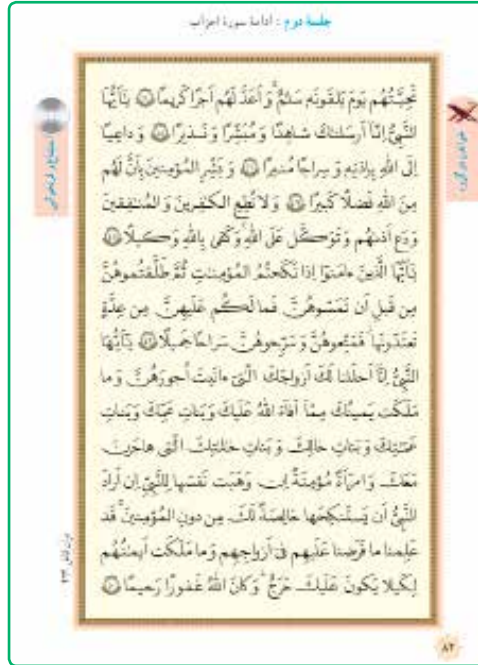 جلسهٔ دوم : ادامهٔ سورهٔ احزاب
تَحِيَّتُهُم يَومَ يَلقَونَهُ سَلامٌ وَ أَعَدَّ لَهُم أَجرًا كَريمًا ﴿٤٤﴾ يٰأَيُّهَا
النَّبِيُّ إِنّا أَرسَلناكَ شاهِدًا وَ مُبَشِّرًا وَ نَذيرًا ﴿٤٥﴾ وَ داعِيًا
إِلَى اللهِ بِإِذنِهِ وَ سِراجًا مُنيرًا ﴿٤٦﴾ وَ بَشِّرِ المُؤمِنينَ بِأَنَّ لَهُم
مِنَ اللهِ فَضلًا كَبيرًا ﴿٤٧﴾ وَ لا تُطِعِ الكٰفِرينَ وَ المُنٰفِقينَ
وَ دَع أَذىٰهُم وَ تَوَكَّل عَلَى اللهِ وَ كَفىٰ بِاللهِ وَكيلًا ﴿٤٨﴾
يٰأَيُّهَا الَّذينَ ءامَنوا إِذا نَكَحتُمُ المُؤمِنٰتِ ثُمَّ طَلَّقتُموهُنَّ
مِن قَبلِ أَن تَمَسّوهُنَّ فَما لَكُم عَلَيهِنَّ مِن عِدَّةٍ
تَعتَدّونَها فَمَتِّعوهُنَّ وَ سَرِّحوهُنَّ سَراحًا جَميلًا ﴿٤٩﴾ يٰأَيُّهَا
النَّبِيُّ إِنّا أَحلَلنا لَكَ أَزواجَكَ الّٰتي ءاتَيتَ أُجورَهُنَّ وَ ما
مَلَكَت يَمينُكَ مِمّا أَفاءَ اللهُ عَلَيكَ وَ بَناتِ عَمِّكَ وَ بَناتِ
عَمّٰتِكَ وَ بَناتِ خالِكَ وَ بَناتِ خٰلٰتِكَ الّٰتي هاجَرنَ
مَعَكَ وَ امرَأَةً مُؤمِنَةً إِن وَهَبَت نَفسَها لِلنَّبِيِّ إِن أَرادَ
النَّبِيُّ أَن يَستَنكِحَها خالِصَةً لَكَ مِن دونِ المُؤمِنينَ قَد
عَلِمنا ما فَرَضنا عَلَيهِم في أَزواجِهِم وَ ما مَلَكَت أَيمٰنُهُم
لِكَيلا يَكونَ عَلَيكَ حَرَجٌ وَ كانَ اللهُ غَفورًا رَحيمًا ﴿٥٠﴾
٨٢